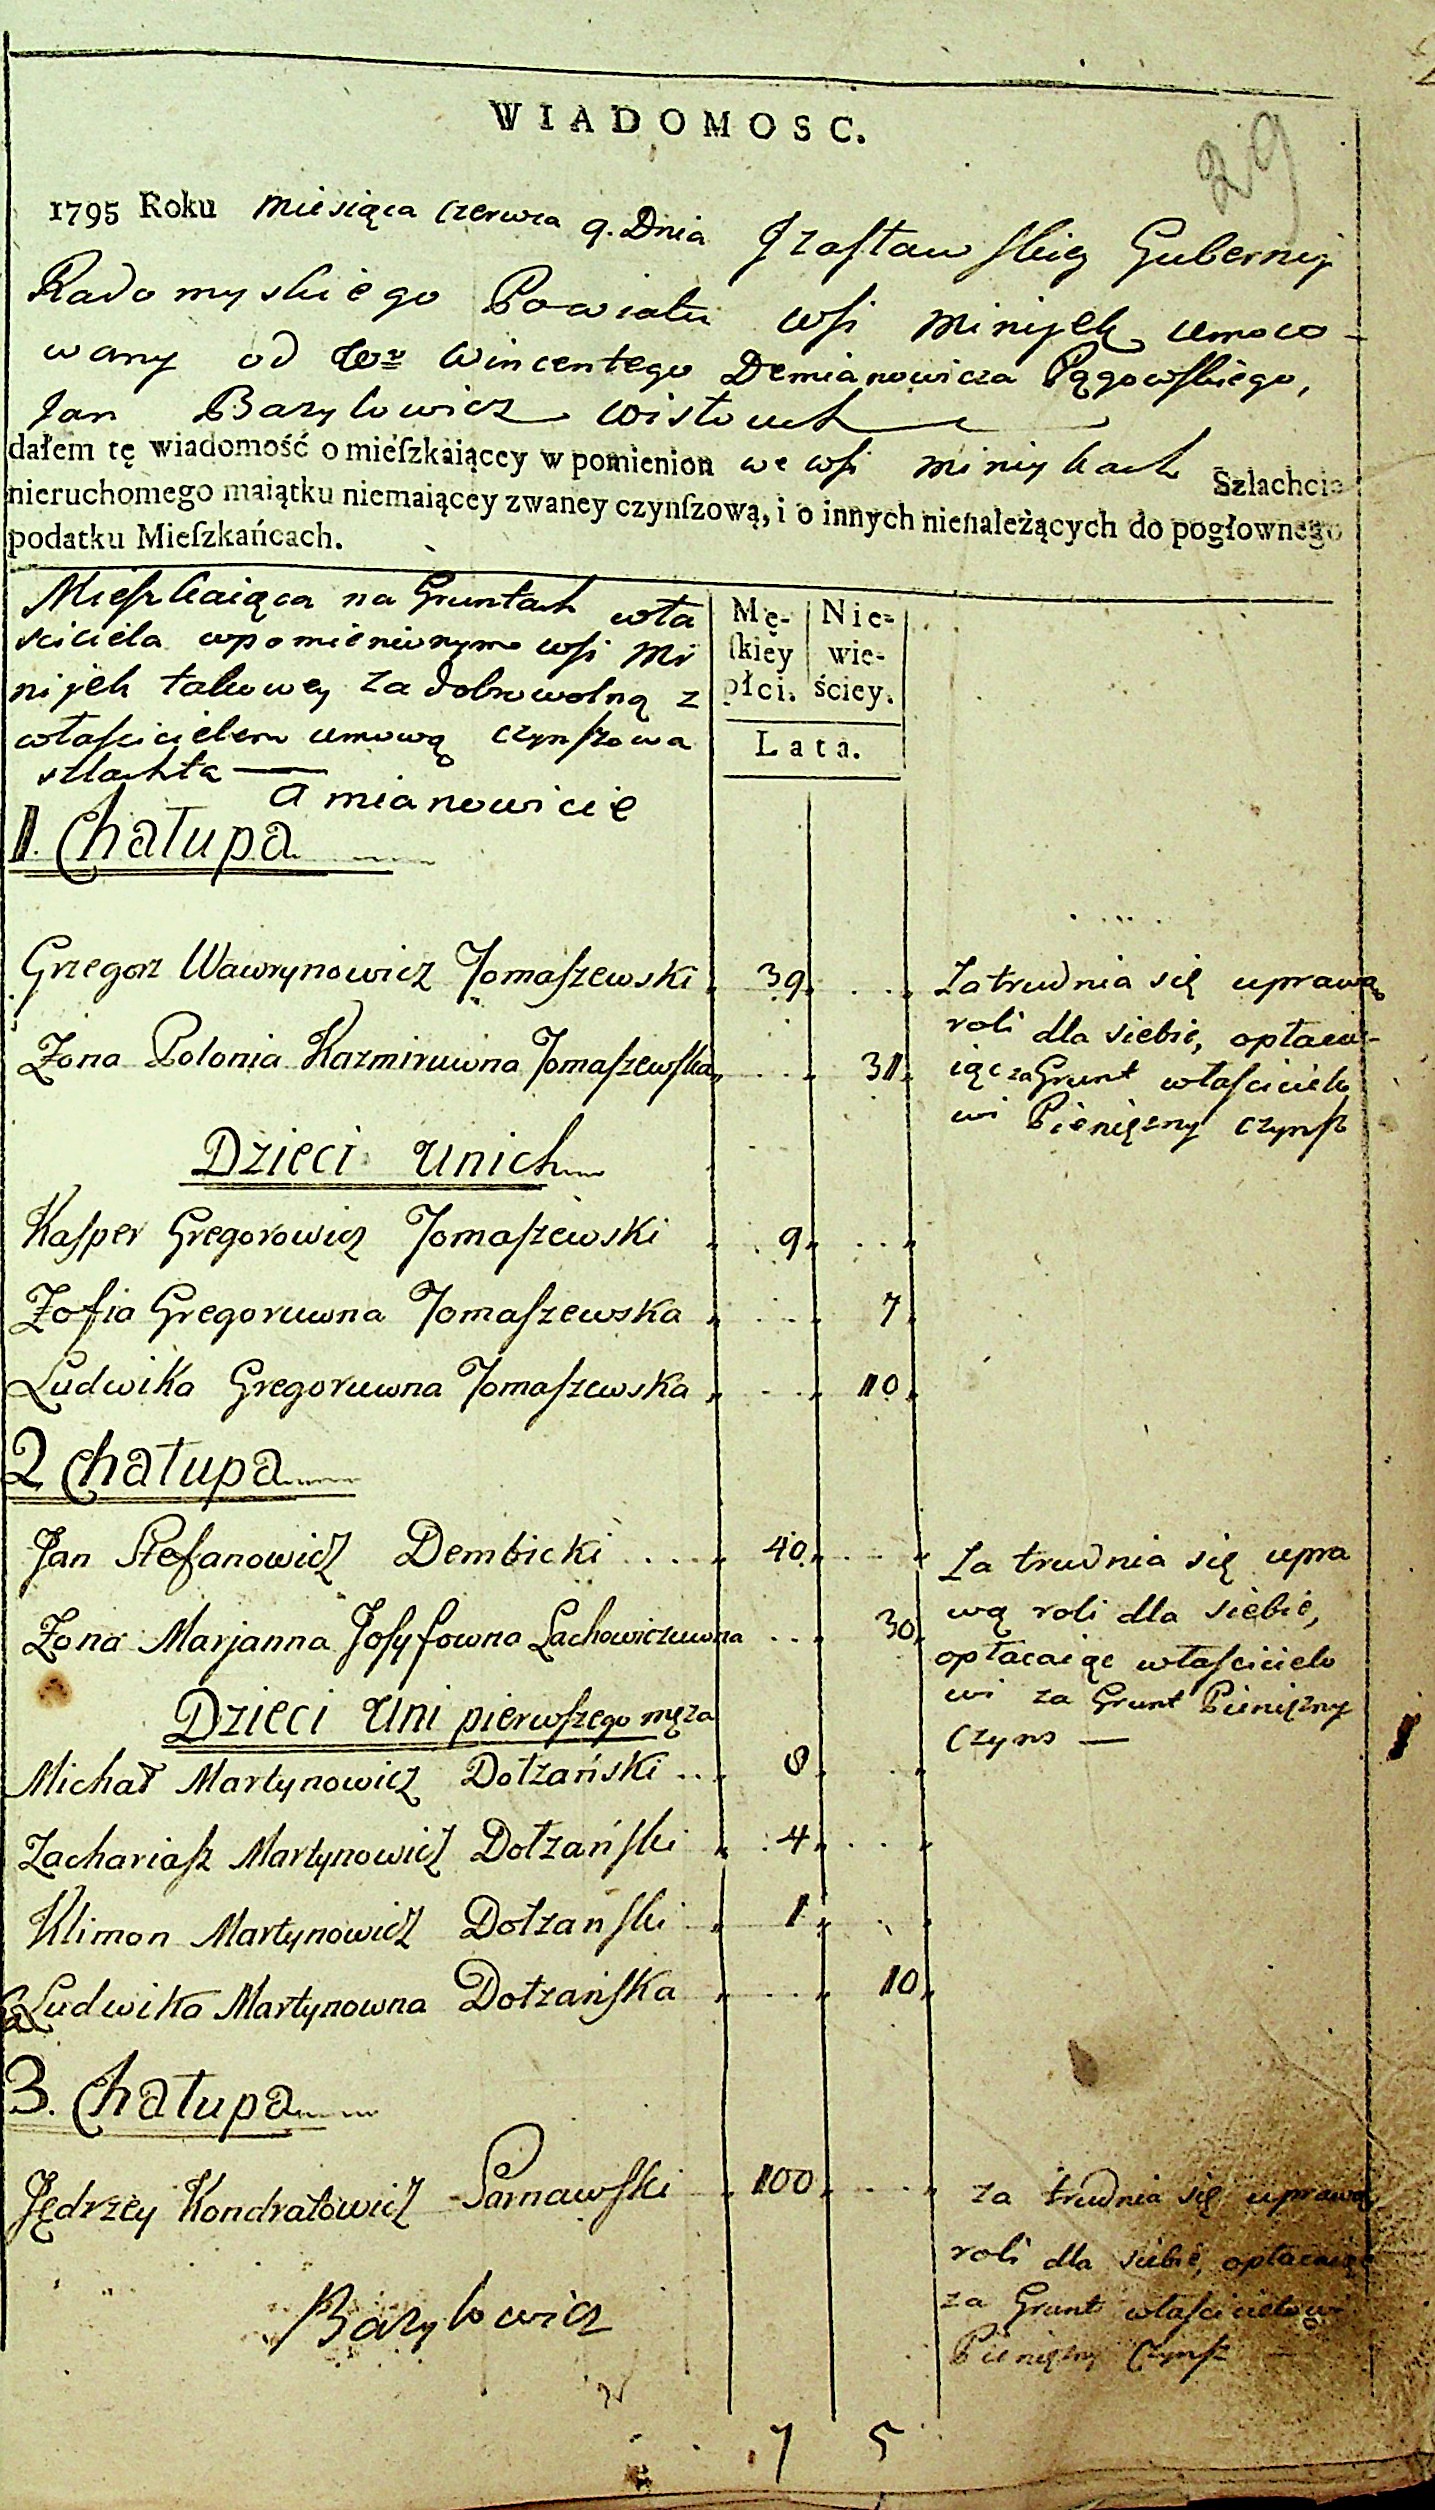 29
WIADOMOSC.
1795 Roku Miesiąca Czerwca 9. Dnia Izasławskiey Gubernij
Radomyskiego Powiatu wsi Minijek umoco-
wany od Wo Wincentego Demianowicza Pągowskiego,
Jan Bazylowicz Wisłouch
dałem tę wiadomość o mieſzkaiącey w pomienion we wsi Miniykach Szlachcie
nieruchomego maiątku niemaiącey zwaney czynſzową, i o innych nienależących do pogłownego
podatku Mieſzkańcach.
Mieſzkaiąca na Gruntach wła
sciciela wpomienionym wsi Mi
nijek takowey za dobrowolną z
właſcicielem umową czynſzowa
szlachta —
a mianowicie
Mę- Nie-
ſkiey wie-
płci. ściey.
Lata.
1. Chałupa
Grzegorz Wawrynowicz Tomaſzewski 39
Zatrudnia się uprawą
roli dla siebie, opłaca-
iąc za Grunt właſcicielo
wi Pieniężny czynſz
Żona Polonia Kazmiruwna Tomaſzewſka 31
Dzieci unich
Kaſper Gregorowicz Tomaſzewski 9
Zofia Gregoruwna Tomaſzewska 7
Ludwika Gregoruwna Tomaſzewska 10
2 Chałupa
Jan Stefanowicz Dembicki 40
Za trudnia się upra
wą roli dla siebie,
opłacaiąc właſcicielo
wi za Grunt Pieniężny
Czyns —
Żona Marjanna Joſyfowna Lachowiczuwna 30
Dzieci Uni pierwſzego męża
Michał Martynowicz Dołzański 8
Zachariaſz Martynowicz Dołzańſki 4
Klimon Martynowicz Dołzanſki 1
Ludwika Martynowna Dołzańſka 10
3. Chałupa
Jędrzey Kondratowicz Sarnawſki 100
za trudnia się uprawą
roli dla siebie, opłacaiąc
za Grunt właſcicielowi
Pieniężny Czynſz —
Bazylowicz
7 5